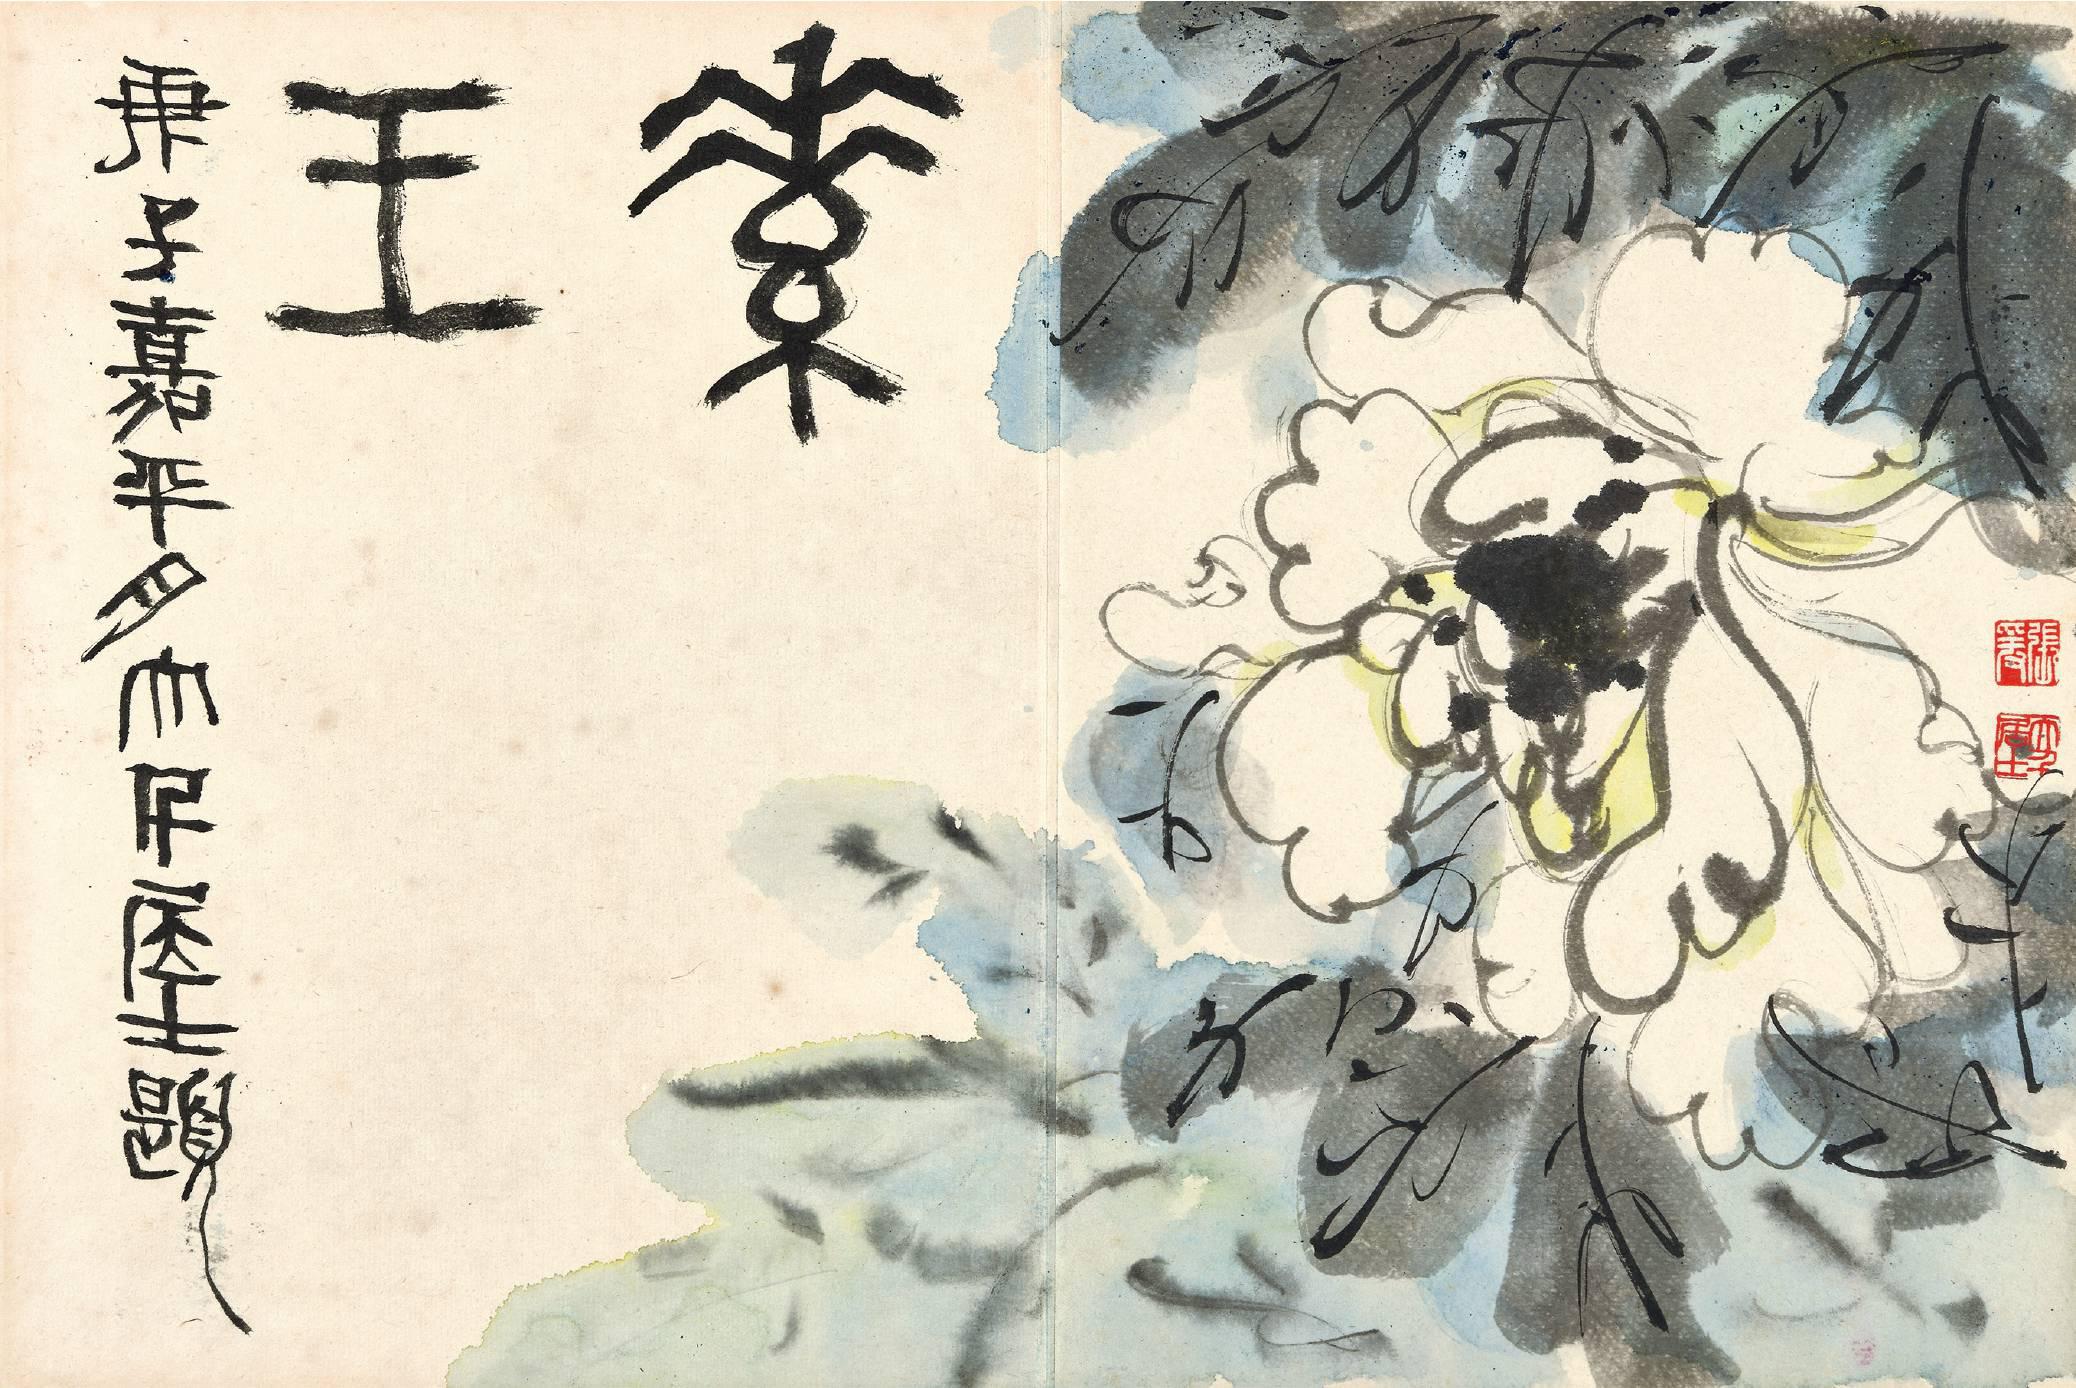 素王
庚子嘉平月大千居士題
張爰
大千居士